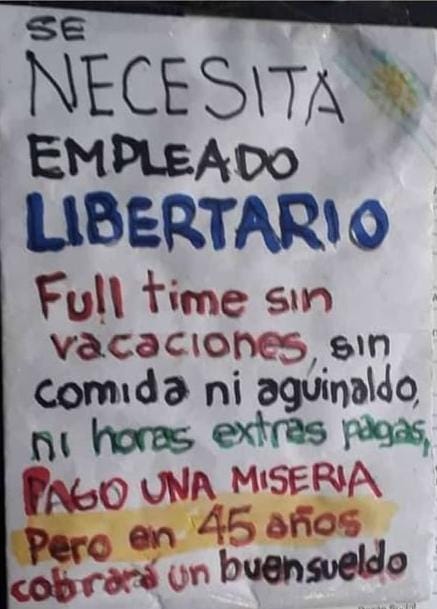 SE
NECESITA
EMPLEADO
LIBERTARIO
Full time sin
vacaciones, sin
comida ni aguinaldo,
ni horas extras pagas,
PAGO UNA MISERIA
Pero en 45 años
cobrará un buen sueldo